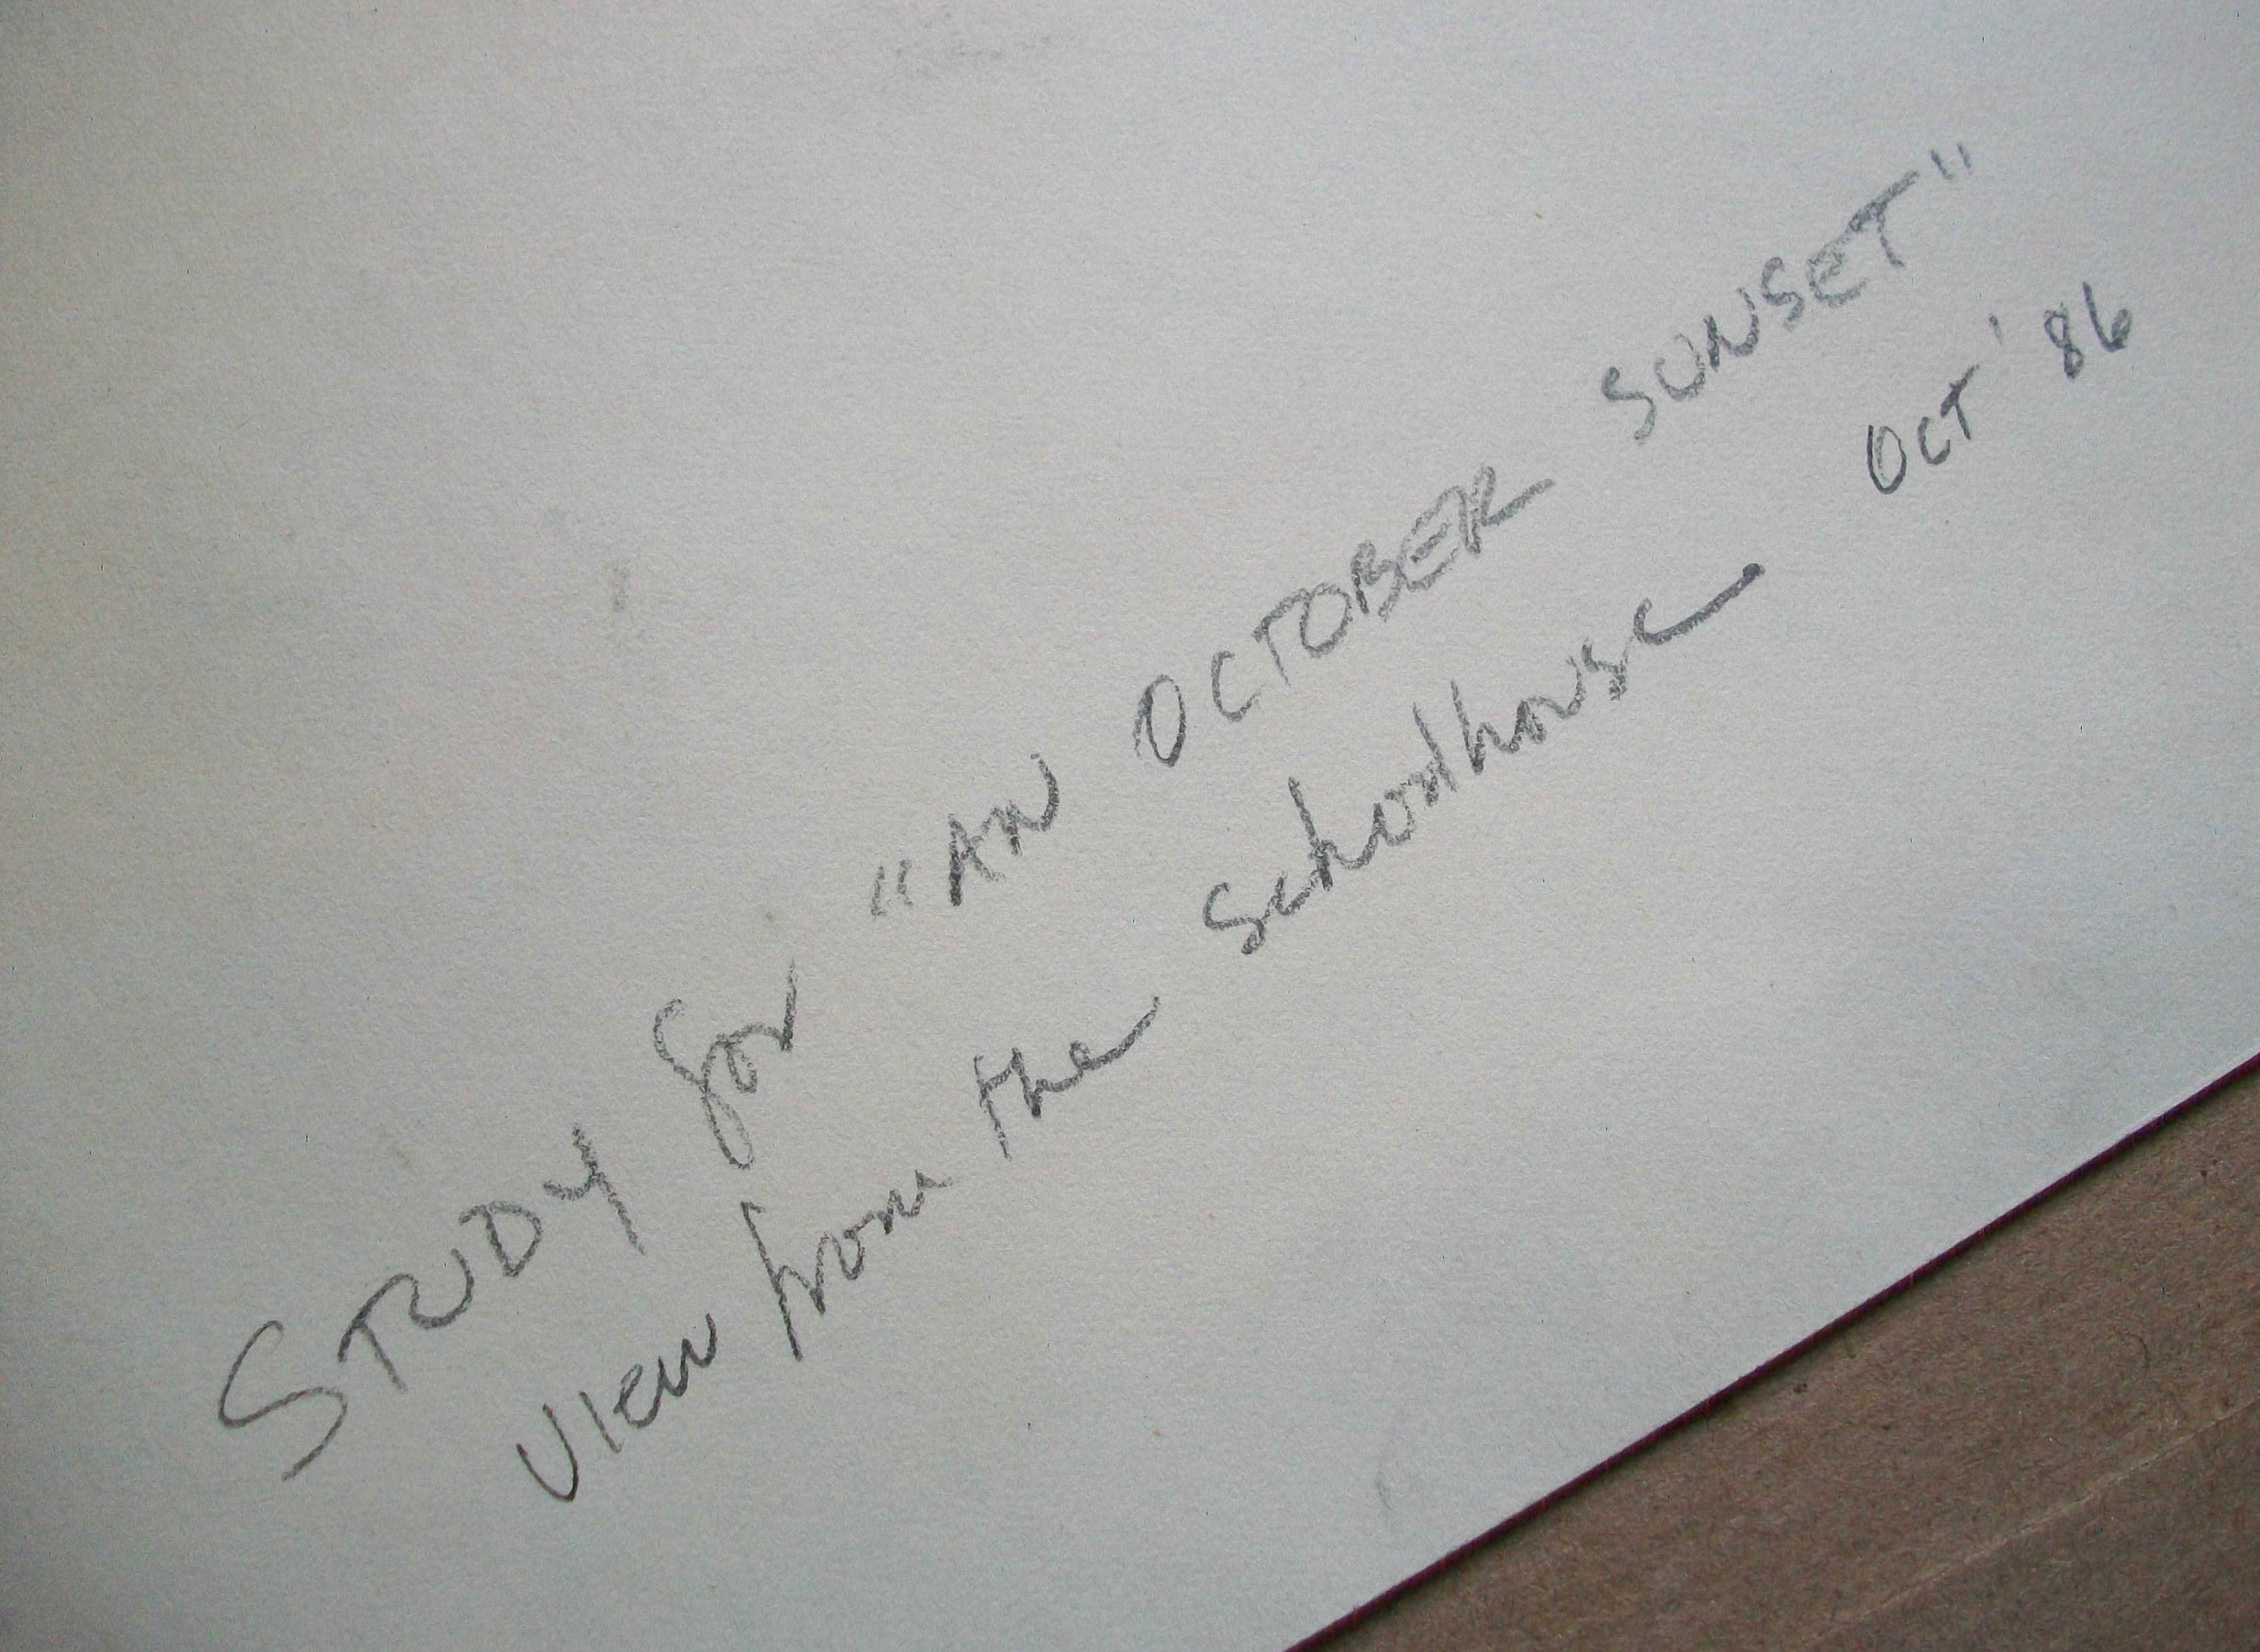 STUDY for "AN OCTOBER SUNSET"
VIEW from the Schoolhouse OCT '86